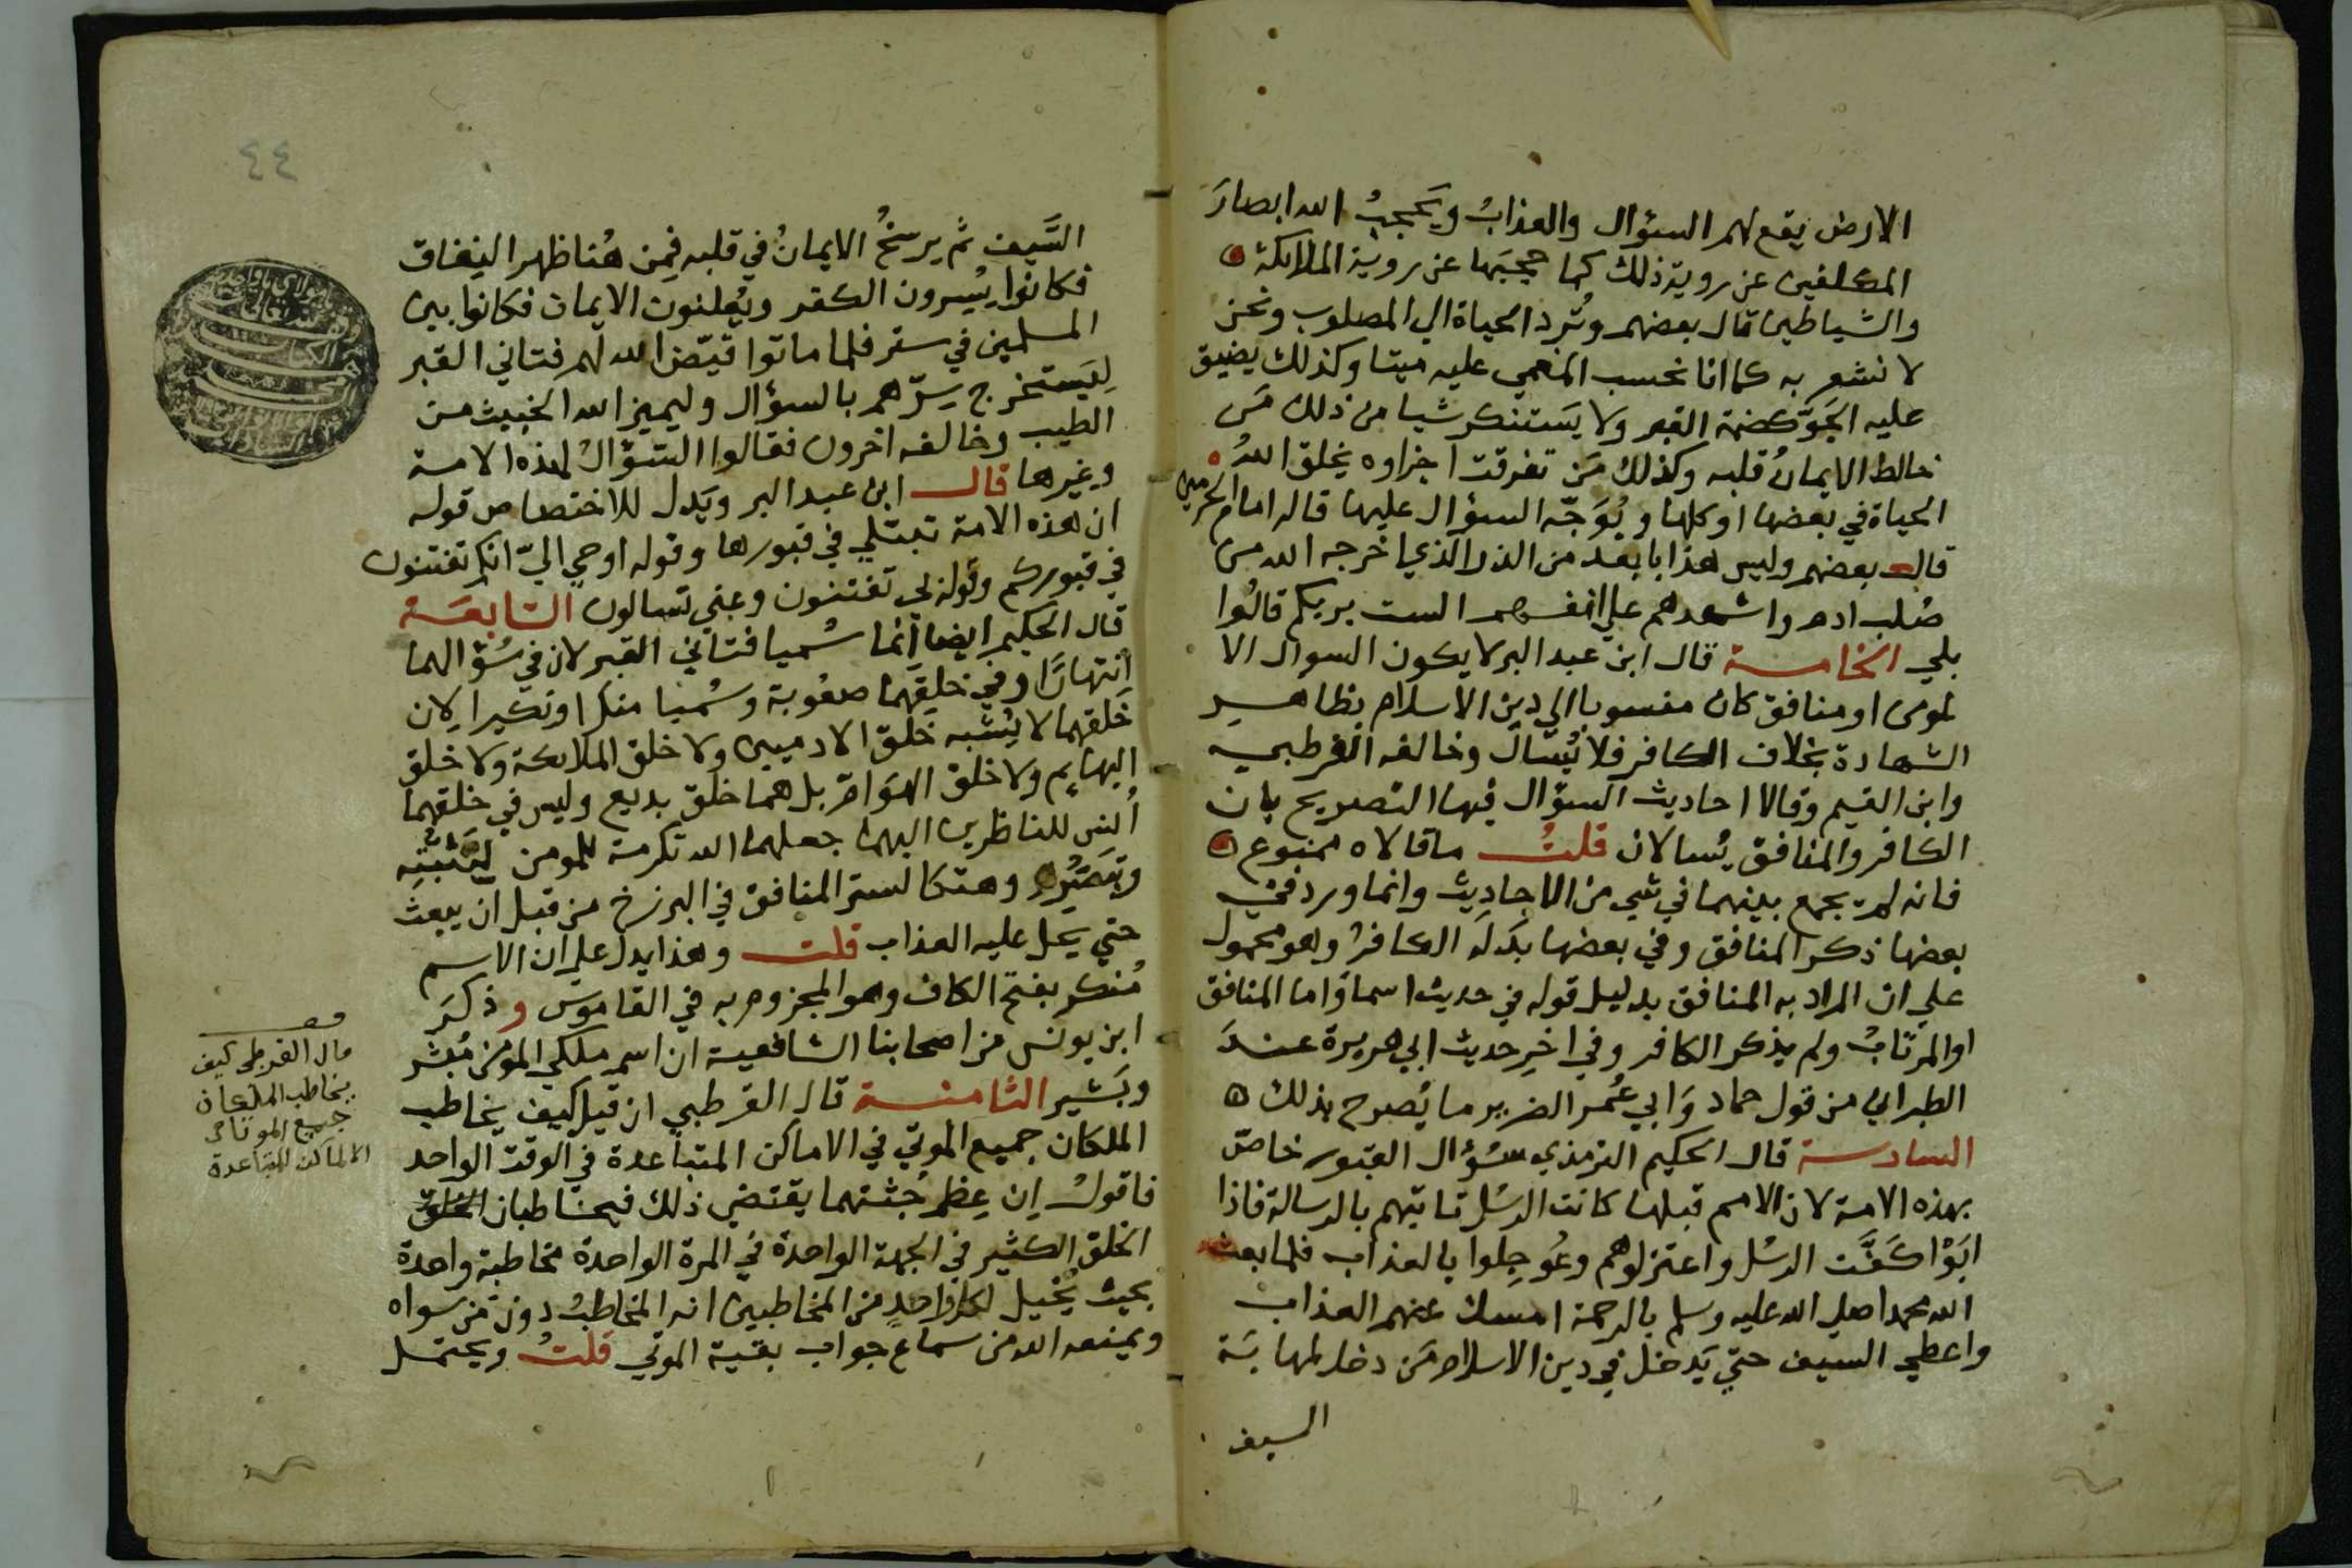 الارض يقع لهم السؤال والعذابُ ويَحجبُ الله ابصارَ
المكلفين عن روية ذلك كما حجبَها عن روية الملائكة
والشياطين قال بعضهم وتُرد الحياة الي المصلوب ونحن
لا نشعر به كما انا نحسب المغمي عليه ميتا وكذلك يضيق
عليه الجَوّ كضمة القبر ولا يَستنكر شيا من ذلك مَن
خالط الايمانُ قلبه وكذلك مَن تفرقت اجزاوه يخلق اللهُ
الحياة في بعضها او كلها ويُوَجّه السؤال عليها قاله امام الحرمين
قال بعضهم وليس هذا بابعد من الذر الذي اخرجه الله من
صُلب ادم واشهدهم علي انفسهم الست بربكم قالُوا
بلي الخامسة قال ابن عبد البر لا يكون السوال الا
لمومن او منافق كان منسوبا الي دين الاسلام بظاهر
الشهادة بخلاف الكافر فلا يُسال وخالفه القرطبي
وابن القيم وقالا احاديث السؤال فيها التصريح بان
الكافر والمنافق يُسالان قلتُ ما قالاه ممنوع
فانه لم يجمع بينهما في شي من الاحاديث وانما ورد في
بعضها ذكر المنافق وفي بعضها بدَله الكافرُ وهو محمول
علي ان المراد به المنافق بدليل قوله في حديث اسما وَاما المنافق
او المرتابُ ولم يذكر الكافر وفي اخرِ حديث ابي هريرة عندَ
الطبراني من قول حماد وَابي عُمر الضرير ما يُصرح بذلك ه
السادسة قال الحكيم الترمذي سُؤال القبور خاصّ
بهذه الامة لان الامم قبلها كانت الرسُل تاتيهم بالرسالة فاذا
ابَوْا كفَّت الرسُل واعتزلوهم وعُوجِلوا بالعذاب فلما بعث
الله محمدا صلي الله عليه وسلم بالرحمة امسك عنهم العذاب
واعطي السيف حتي يَدخل في دين الاسلام مَن دخل لمهابَة
السيف
٤٤
السَّيف ثم يرسخُ الايمانُ في قلبه فمِن هُنا ظهر النِفاق
فكانوا يُسِرون الكفر ويُعلنون الايمان فكانوا بين
المسلمين في ستر فلما ماتوا قيّض الله لهم فتاني القبر
لِيَستخرج سِرّهم بالسؤال وليميز الله الخبيث من
الطيب وخالفه اخرون فقالوا السّؤالُ لهذه الامة
وغيرها قال ابن عبد البر ويَدل للاختصاص قوله
ان هذه الامة تبتلي في قبورها وقوله اوحي اليّ انكم تفتنون
في قبوركم وقوله بي تفتنون وعني تسالون السابعَة
قال الحكيم ايضا انما سُميا فتاني القبر لان في سُؤالهما
انتهارًا وفي خلقِهما صعُوبة وسُميا منكرا ونكيرا لان
خَلقهما لا يُشْبه خلقَ الادميين ولا خلق الملائكة ولا خلق
البهايم ولا خلق الهَوامّ بل هما خلق بديع وليس في خلقهما
اُنس للناظرين اليهما جعلهما الله تكرمة للمومن ليُثبّته
ويُبَصّره وهتكا لستر المنافق في البرزخ من قبل ان يبعث
حتي يحل عليه العذاب قلت وهذا يدل علي ان الاسم
مُنكر بفتح الكاف وهو المجزوم به في القاموس وذكرَ
ابن يونس من اصحابنا الشافعية ان اسم ملكي المومن مُبشر
وبَشير الثامنة قال القرطبي ان قيل كيف يخاطب
الملكان جميع الموتي في الاماكن المتباعدة في الوقت الواحد
فاقولُ اِن عِظم جُثتهما يقتضي ذلك فيخاطبان الخلق
الخلق الكثير في الجهة الواحدة في المرة الواحدة مخاطبة واحدة
بحيث يُخيل لكل واحدٍ من المخاطبين انه المخاطبُ دون من سواه
ويمنعه الله من سماع جواب بقية الموتي قلتُ ويحتمل
قال القرطبي كيف
يخاطب الملكان
جميع الموتا في
الاماكن المتباعدة